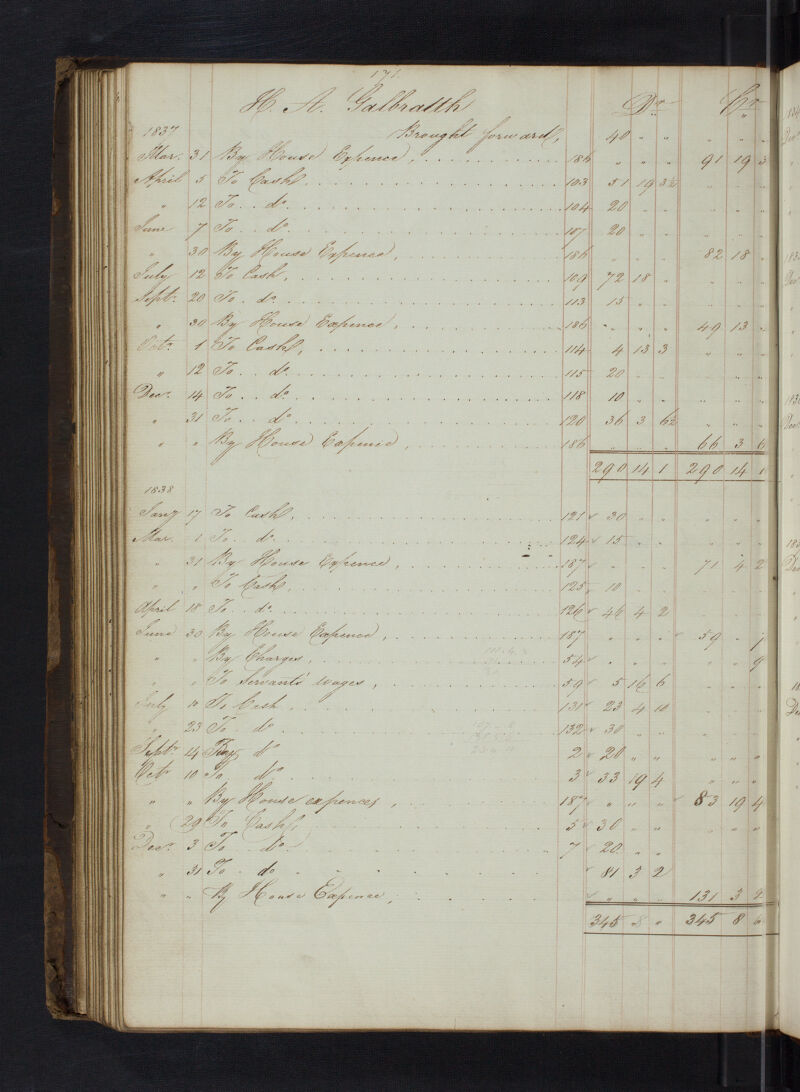 171.
H. A. Galbraith Dr Cr
1837 Brought forward, 40 " " " " "
Mar. 31 By House Expence, 186 " " " 91 19 3
April 5 To Cash 103 51 19 3½ " " "
" 12 To do 104 20 " " " " "
June 7 To do 107 20 " " " " "
" 30 By House Expence, 186 " " " 82 18 "
July 12 To Cash, 109 72 18 " " " "
Sept. 20 To do 113 15 " " " " "
" 30 By House Expence, 186 " " " 49 13 "
Octr. 1 To Cash, 114 4 13 3 " " "
" 12 To do 115 20 " " " " "
Decr. 14 To do 118 10 " " " " "
" 31 To do 120 36 3 6½ " " "
" " By House Expence, 186 " " " 66 3 6
290 14 1 290 14 1
1838
Jany 17 To Cash, 121 30 " " " " "
Mar. 1 To do 124 15 " " " " "
" 31 By House Expence, 187 " " " 71 4 2
" " To Cash 125 10 " " " " "
April 18 To do 126 46 4 2 " " "
June 30 By House Expence, 187 " " " 59 "
" " By Charges, 54 " " " " " 9
" " To Servants' wages, 59 5 16 6 " " "
July 10 To Cash 131 23 4 10 " " "
23 To do 132 30 " " " " "
Septr 14 do 2 20 " " " " "
Octr 10 To do 3 33 19 4 " " "
" " By House expences, 187 " " " 83 19 4
" 29 To Cash, 5 30 " " " " "
Decr. 3 To do 7 20 " "
" 31 To do 81 3 2
" " By House Expence, " " " 131 3 2
345 8 " 345 8 6